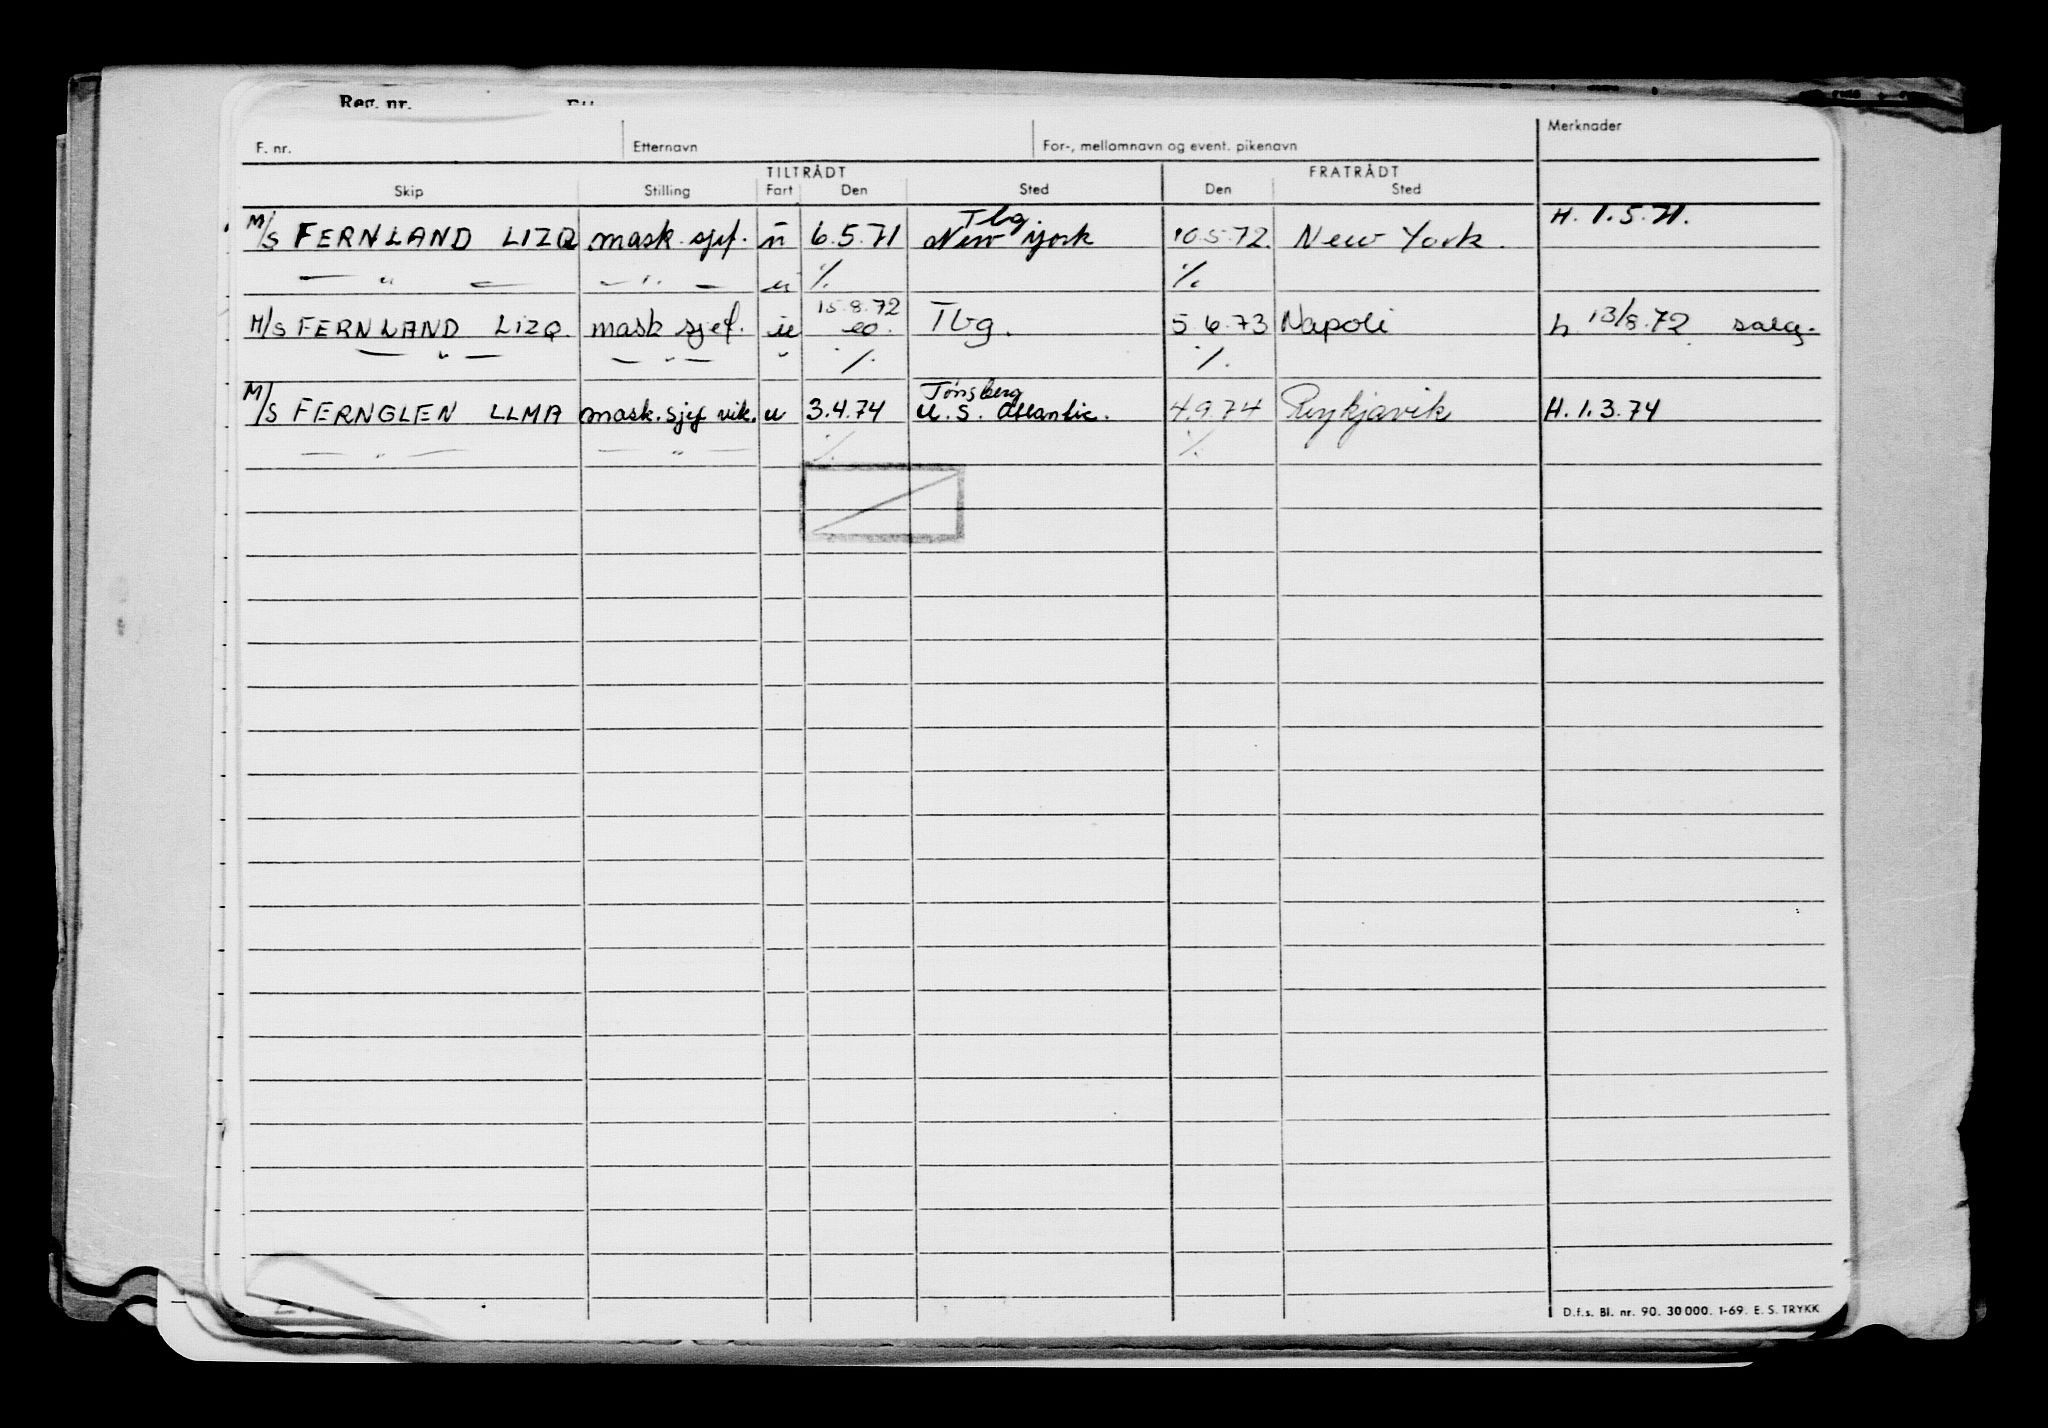 Reg. nr.
F. nr. Etternavn For-, mellomnavn og event. pikenavn Merknader
TILTRÅDT FRATRÅDT
Skip Stilling Fart Den Sted Den Sted
Tbg. H. 1.5.71.
M/S FERNLAND LIZQ mask. sjef. u 6.5.71 New York 10.5.72. New York.
— " — — " — u % %
15.8.72
M/S FERNLAND LIZQ. mask sjef. u Tbg. 5 6.73 Napoli h 13/8.72 salg.
— " — — " — " % %
Tønsberg
M/S FERNGLEN LLMA mask. sjef vik. u 3.4.74 U.S. Atlantic. 4.9.74 Reykjavik H. 1.3.74
— " — — " — % %
D.f.s. Bl. nr. 90. 30 000. 1-69. E. S. TRYKK